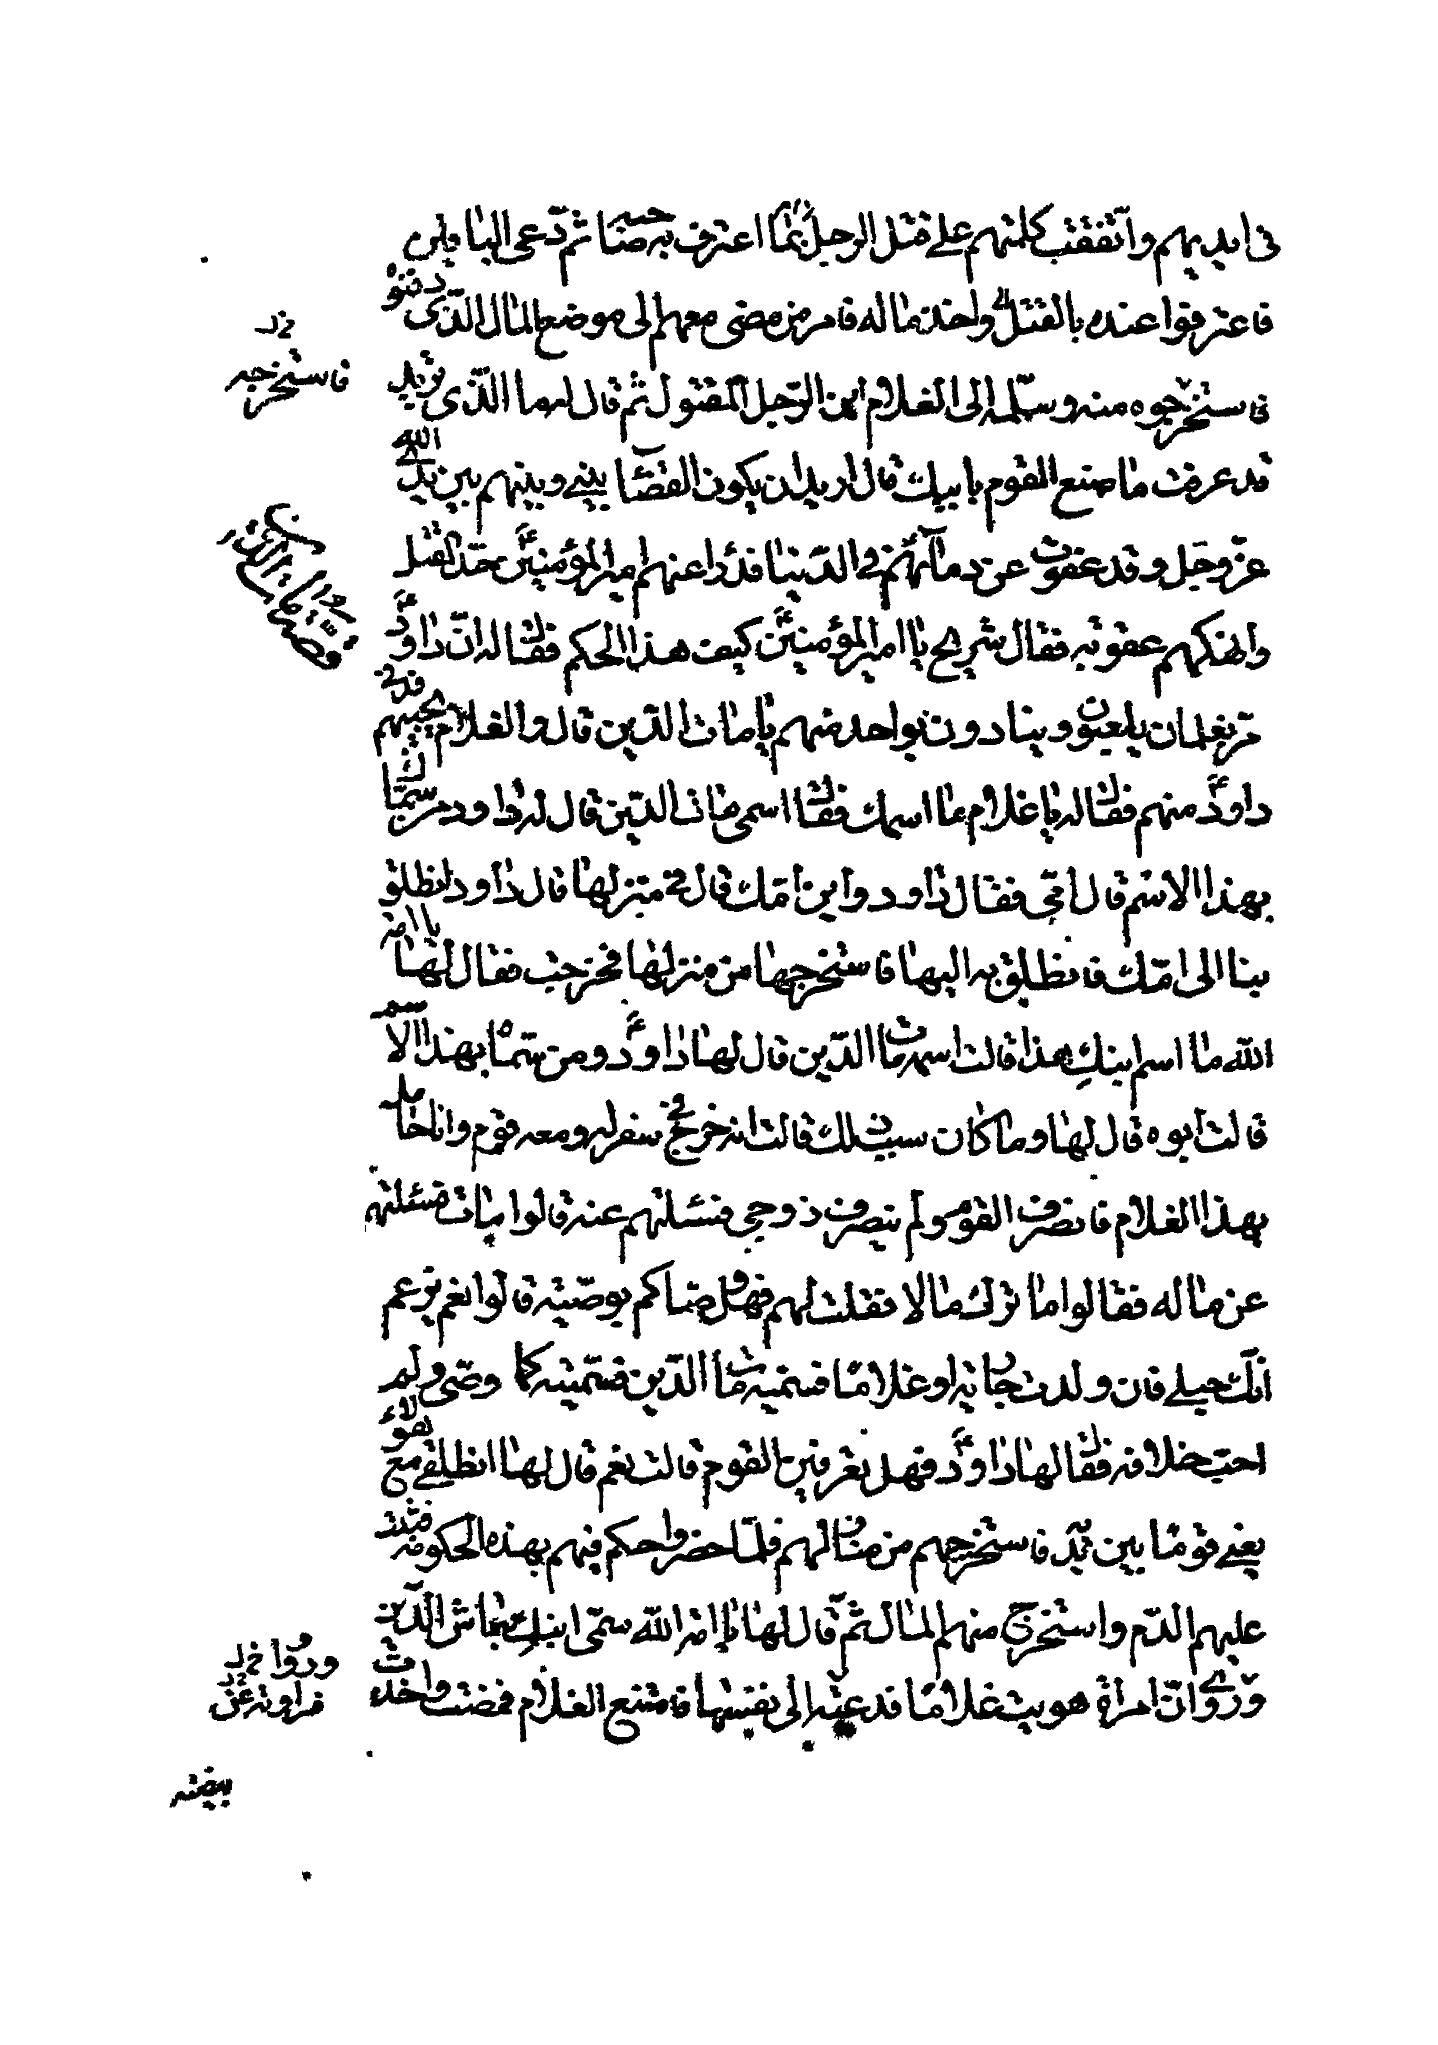 في ايديهم واتفقت كلمتهم على قتل الرجل بما اعترف به صاحبه ثم دعى الباقين
فاعترفوا عنده بالقتل واخذ ماله فامر من مضى معهم الى موضع المال الذي دفنوه
فاستخرجوه منه وسلمه الى الغلام ابن الرجل المقتول ثم قال له ما الذي تريد
قد عرفت ما صنع القوم بابيك قال اريد ان يكون القضا بيني وبينهم بين يدي الله
عز وجل وقد عفوت عن دمآئهم في الدنيا فدرا عنهم امير المؤمنين ع حد القتل
وانهكهم عقوبة فقال شريح يا امير المؤمنين ع كيف هذا الحكم فقال له ان داود ع
مر بغلمان يلعبون وينادون بواحد منهم يا مات الدين قال والغلام يجيبهم فدنى
داود ع منهم فقال له يا غلام ما اسمك فقال اسمى مات الدين قال له داود من سماك
بهذا الاسم قال امي فقال داود واين امك قال في منزلها قال داود انطلق
بنا الى امك فانطلق به اليها فاستخرجها من منزلها فخرجت فقال لها يا امة
الله ما اسم ابنك هذا قالت اسمه مات الدين قال لها داود ع ومن سماه بهذا الاسم
قالت ابوه قال لها وما كان سبب ذلك قالت انه خرج في سفر له ومعه قوم وانا حامل
بهذا الغلام فانصرف القوم ولم ينصرف زوجي فسئلتهم عنه قالوا مات فسئلتهم
عن ماله فقالوا ما ترك مالا فقلت لهم فهل وصاكم بوصية قالوا نعم يزعم
انك حبلى فان ولدت جارية او غلاما فسميه مات الدين فسميته كما وصى ولم
احب خلافه فقال لها داود ع فهل تعرفين القوم قالت نعم قال لها انطلقى مع هؤلاء
يعنى قوما بين يديه فاستخرجهم من منازلهم فلما حضروا حكم فيهم بهذه الحكومة فثبت
عليهم الدم واستخرج منهم المال ثم قال لها يا امة الله سمى ابنك بعاش الدين
وروي ان امراة هويت غلاما فدعته الى نفسها فامتنع الغلام فمضت واخذت
خ ل
فاستخرجه
ورووا خ ل
فراودته عن خ ل
بيضة